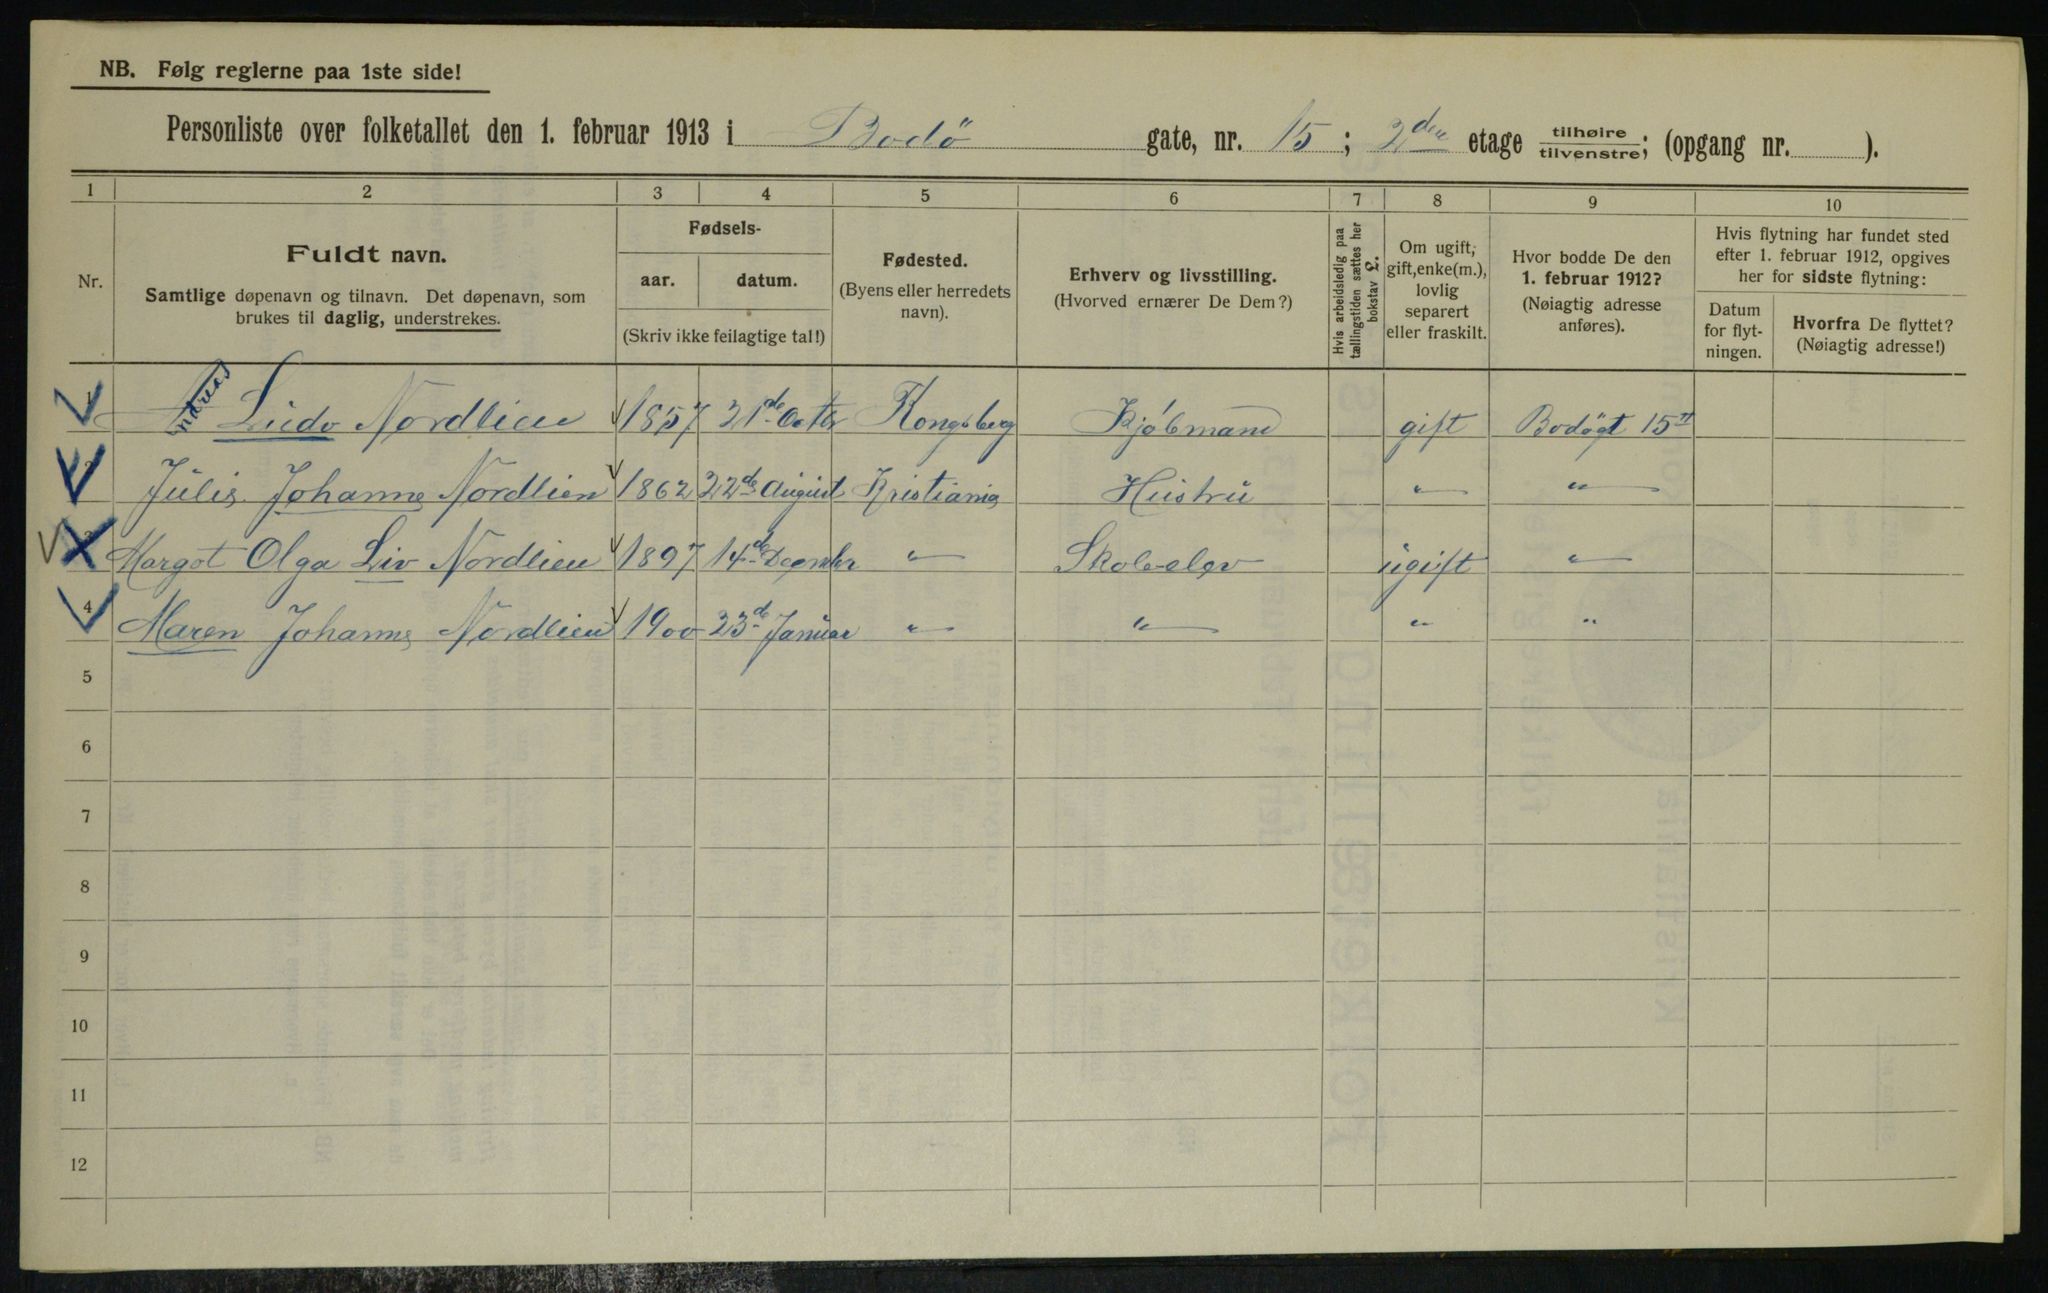 NB. Følg reglerne paa 1ste side!
Personliste over folketallet den 1. februar 1913 i Bodö gate, nr. 15; 2den etage tilhøire/tilvenstre; (opgang nr. ).
1 2 3 4 5 6 7 8 9 10
Nr.
Fuldt navn.
Samtlige døpenavn og tilnavn. Det døpenavn, som
brukes til daglig, understrekes.
Fødsels-
aar. datum.
(Skriv ikke feilagtige tal!)
Fødested.
(Byens eller herredets
navn).
Erhverv og livsstilling.
(Hvorved ernærer De Dem?)
Hvis arbeidsledig paa
tællingstiden sættes her
bokstav L.
Om ugift,
gift, enke(m.),
lovlig
separert
eller fraskilt.
Hvor bodde De den
1. februar 1912?
(Nøiagtig adresse
anføres).
Hvis flytning har fundet sted
efter 1. februar 1912, opgives
her for sidste flytning:
Datum
for flyt-
ningen.
Hvorfra De flyttet?
(Nøiagtig adresse!)
1 Andreas Ludv Nordlien 1857 21de Octbr Kongsberg Kjöbmand gift Bodögt 15II
2 Julie Johanne Nordlien 1862 22de August Kristiania Hustru " "
3 Margot Olga Liv Nordlien 1897 14de Decmbr " Skole-elev ugift "
4 Maren Johanne Nordlien 1900 23de Januar " " " "
5
6
7
8
9
10
11
12